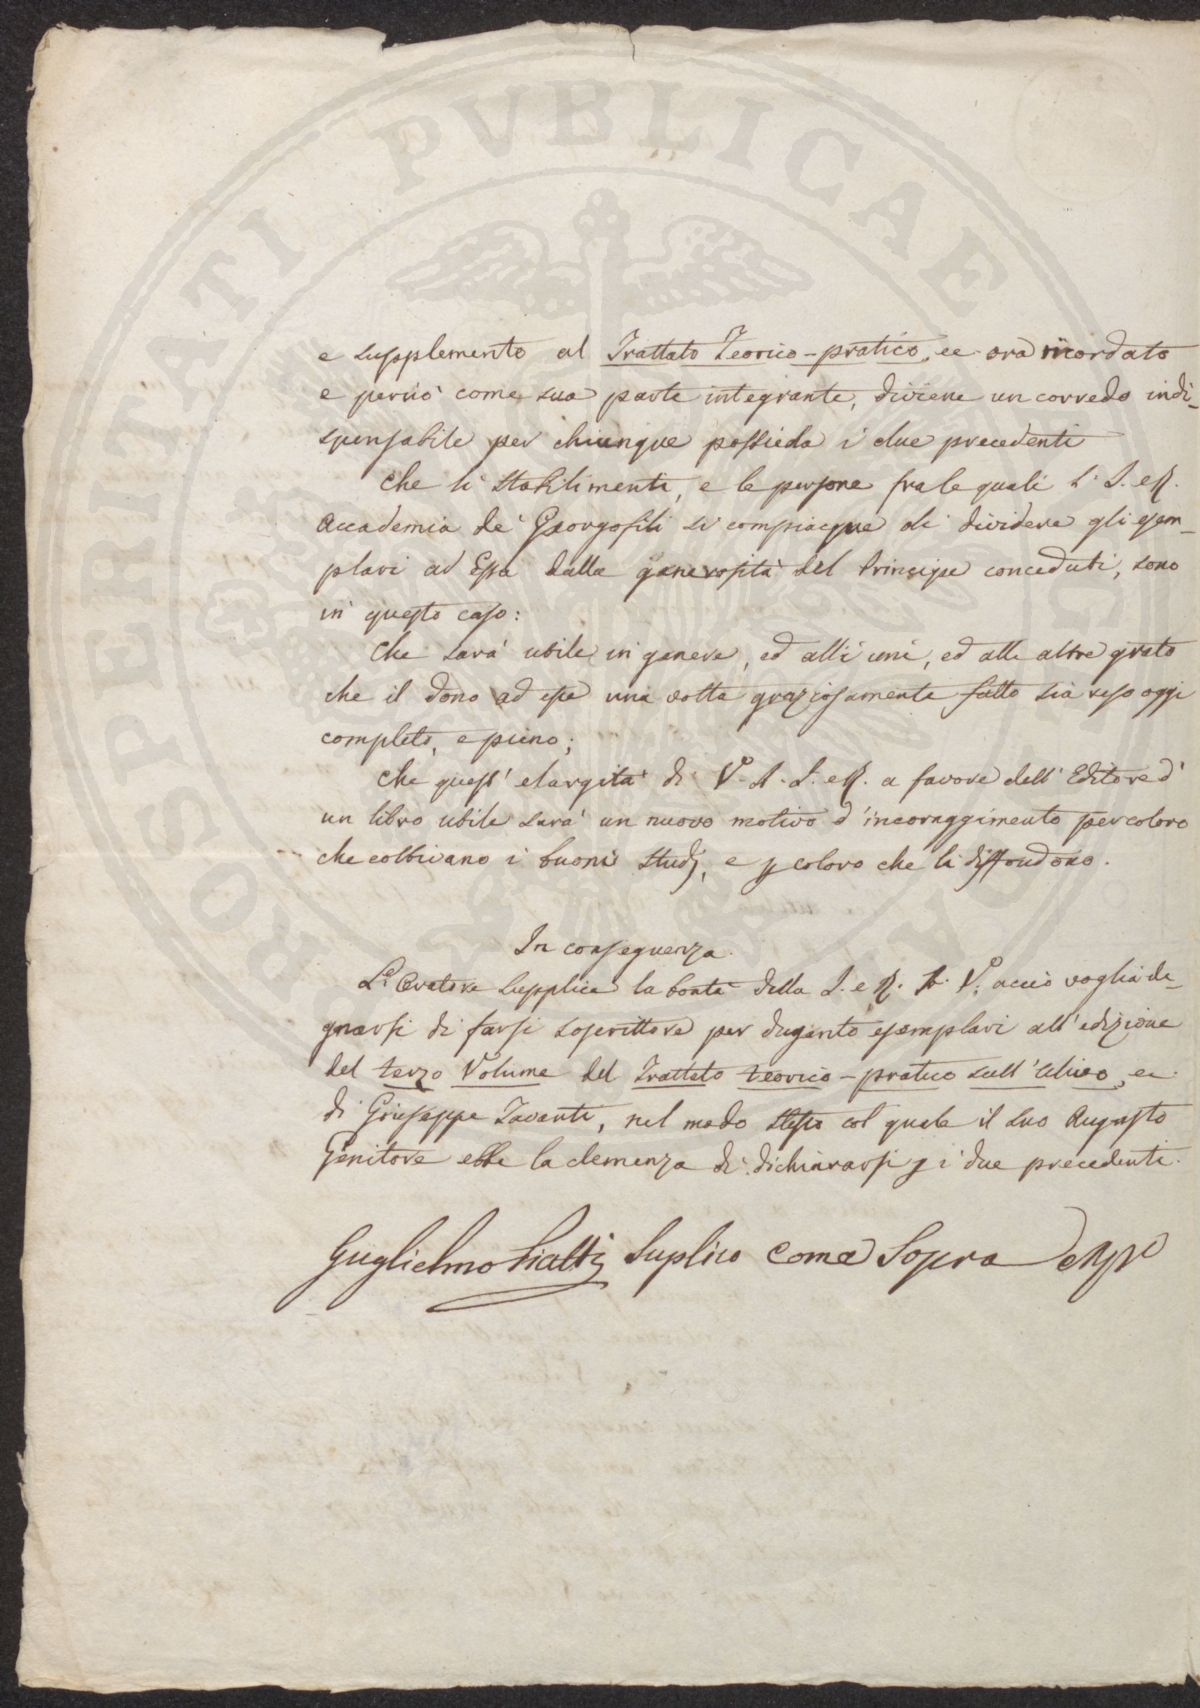 PROSPERITATI PVBLICAE
e supplemento al Trattato Teorico-pratico, ec ora ricordato
e perciò come sua parte integrante, diviene un corredo indi-
spensabile per chiunque possieda i due precedenti
Che li Stabilimenti, e le persone fra le quali l' I. e R.
Accademia de' Georgofili si compiacque di dividere gli esem-
plari ad Essa dalla generosità del Principe conceduti, sono
in questo caso:
Che sarà utile in genere, ed alli uni, ed alle altre grato
che il dono ad esse una volta graziosamente fatto sia reso oggi
completo, e pieno;
Che quest' elargità di V. A. I. e R. a favore dell' Editore d'
un libro utile sarà un nuovo motivo d'incoraggimento per coloro
che coltivano i buoni studj, e p coloro che li diffondono.
In conseguenza
L'Oratore supplica la bontà della I. e R. A. V. acciò voglia de-
gnarsi di farsi soscrittore per dugento esemplari all'edizione
del terzo Volume del Trattato teorico-pratico sull'Ulivo, ec.
di Giuseppe Tavanti, nel modo stesso col quale il suo Augusto
Genitore ebbe la clemenza di dichiararsi p i due precedenti.
Guglielmo Piatti Suplico Come Sopra